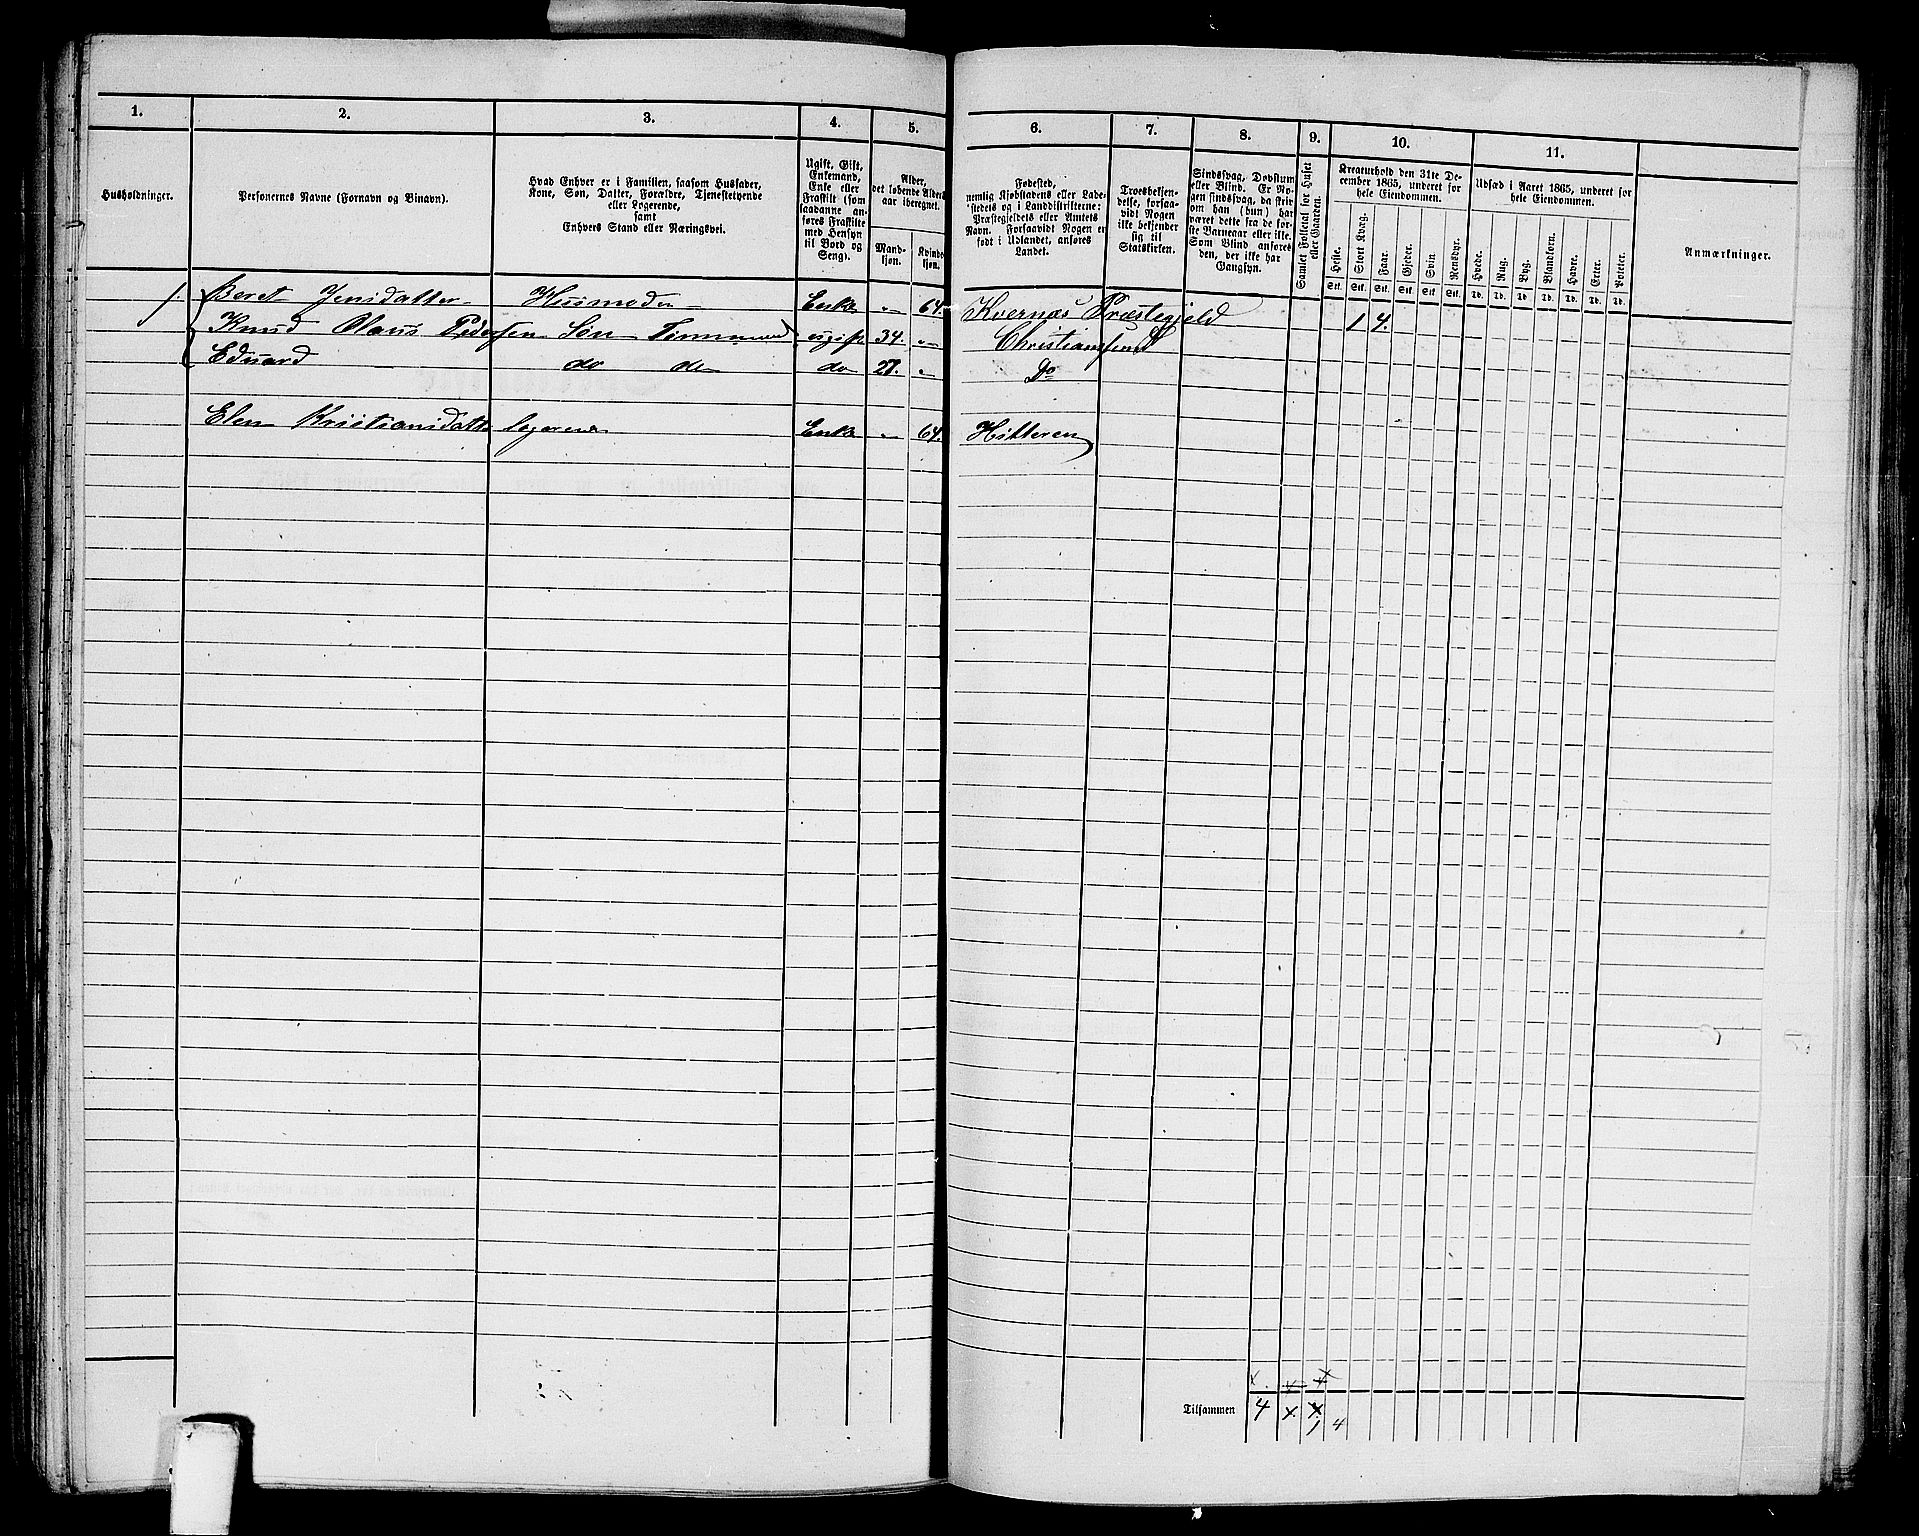 1. 2. 3. 4. 5. 6. 7. 8. 9. 10. 11.
Husholdninger.
Personernes Navne (Fornavn og Binavn).
Hvad Enhver er i Familien, saasom Husfader,
Kone, Søn, Datter, Forældre, Tjenestetyende
eller Logerende,
samt
Enhvers Stand eller Næringsvei.
Ugift, Gift,
Enkemand,
Enke eller
Fraskilt (som
saadanne an-
føres Fraskilte
med Hensyn
til Bord og
Seng).
Alder,
det løbende Alders-
aar iberegnet.
Mand-
kjøn.
Kvinde-
kjøn.
Fødested,
nemlig Kjøbstadens eller Lade-
stedets og i Landdistrikterne:
Præstegjeldets eller Amtets
Navn. Forsaavidt Nogen er
født i Udlandet, anføres
Landet.
Troesbekjen-
delse, forsaa-
vidt Nogen
ikke bekjender
sig til
Statskirken.
Sindssvag, Døvstum
eller Blind. Er No-
gen sindssvag, da skriv
om han (hun) har
været dette fra de før-
ste Barneaar eller ikke.
Som Blind anføres
den, der ikke har
Gangsyn.
Samlet Folketal for Huset
eller Gaarden.
Kreaturhold den 31te De-
cember 1865, underet for
hele Eiendommen.
Heste. Stort Kvæg. Faar. Gjeder. Svin. Rensdyr.
Stk. Stk. Stk. Stk. Stk. Stk.
Udsæd i Aaret 1865, underet for
hele Eiendommen.
Hvede. Rug. Byg. Blandkorn. Havre. Erter. Poteter.
Td. Td. Td. Td. Td. Td. Td.
Anmærkninger.
1. Beret Jensdatter Husmoder Enke " 64. Kvernæs Præstegjeld 1 4.
Knud Olaus Pedersen Søn ugift 34. " Christiansund
Eduard do do do " Do
Elen Kristiansdatter logerende Enke " 64. Hitteren
Tilsammen 4 x. x.
1 4